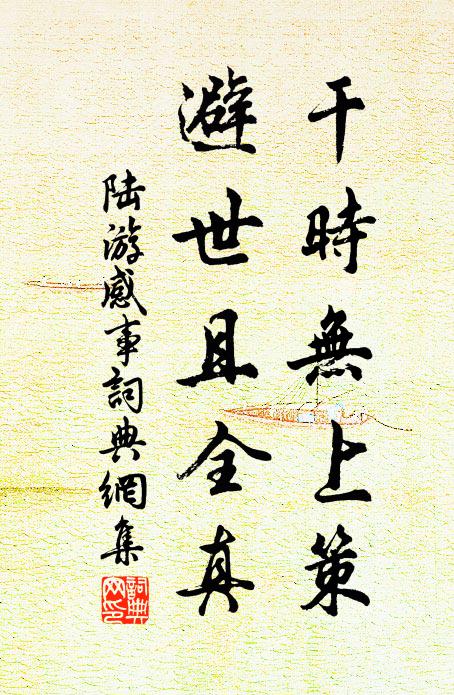 干時無上策
避世且全真
陆游感事詞典網集
詞典
网印